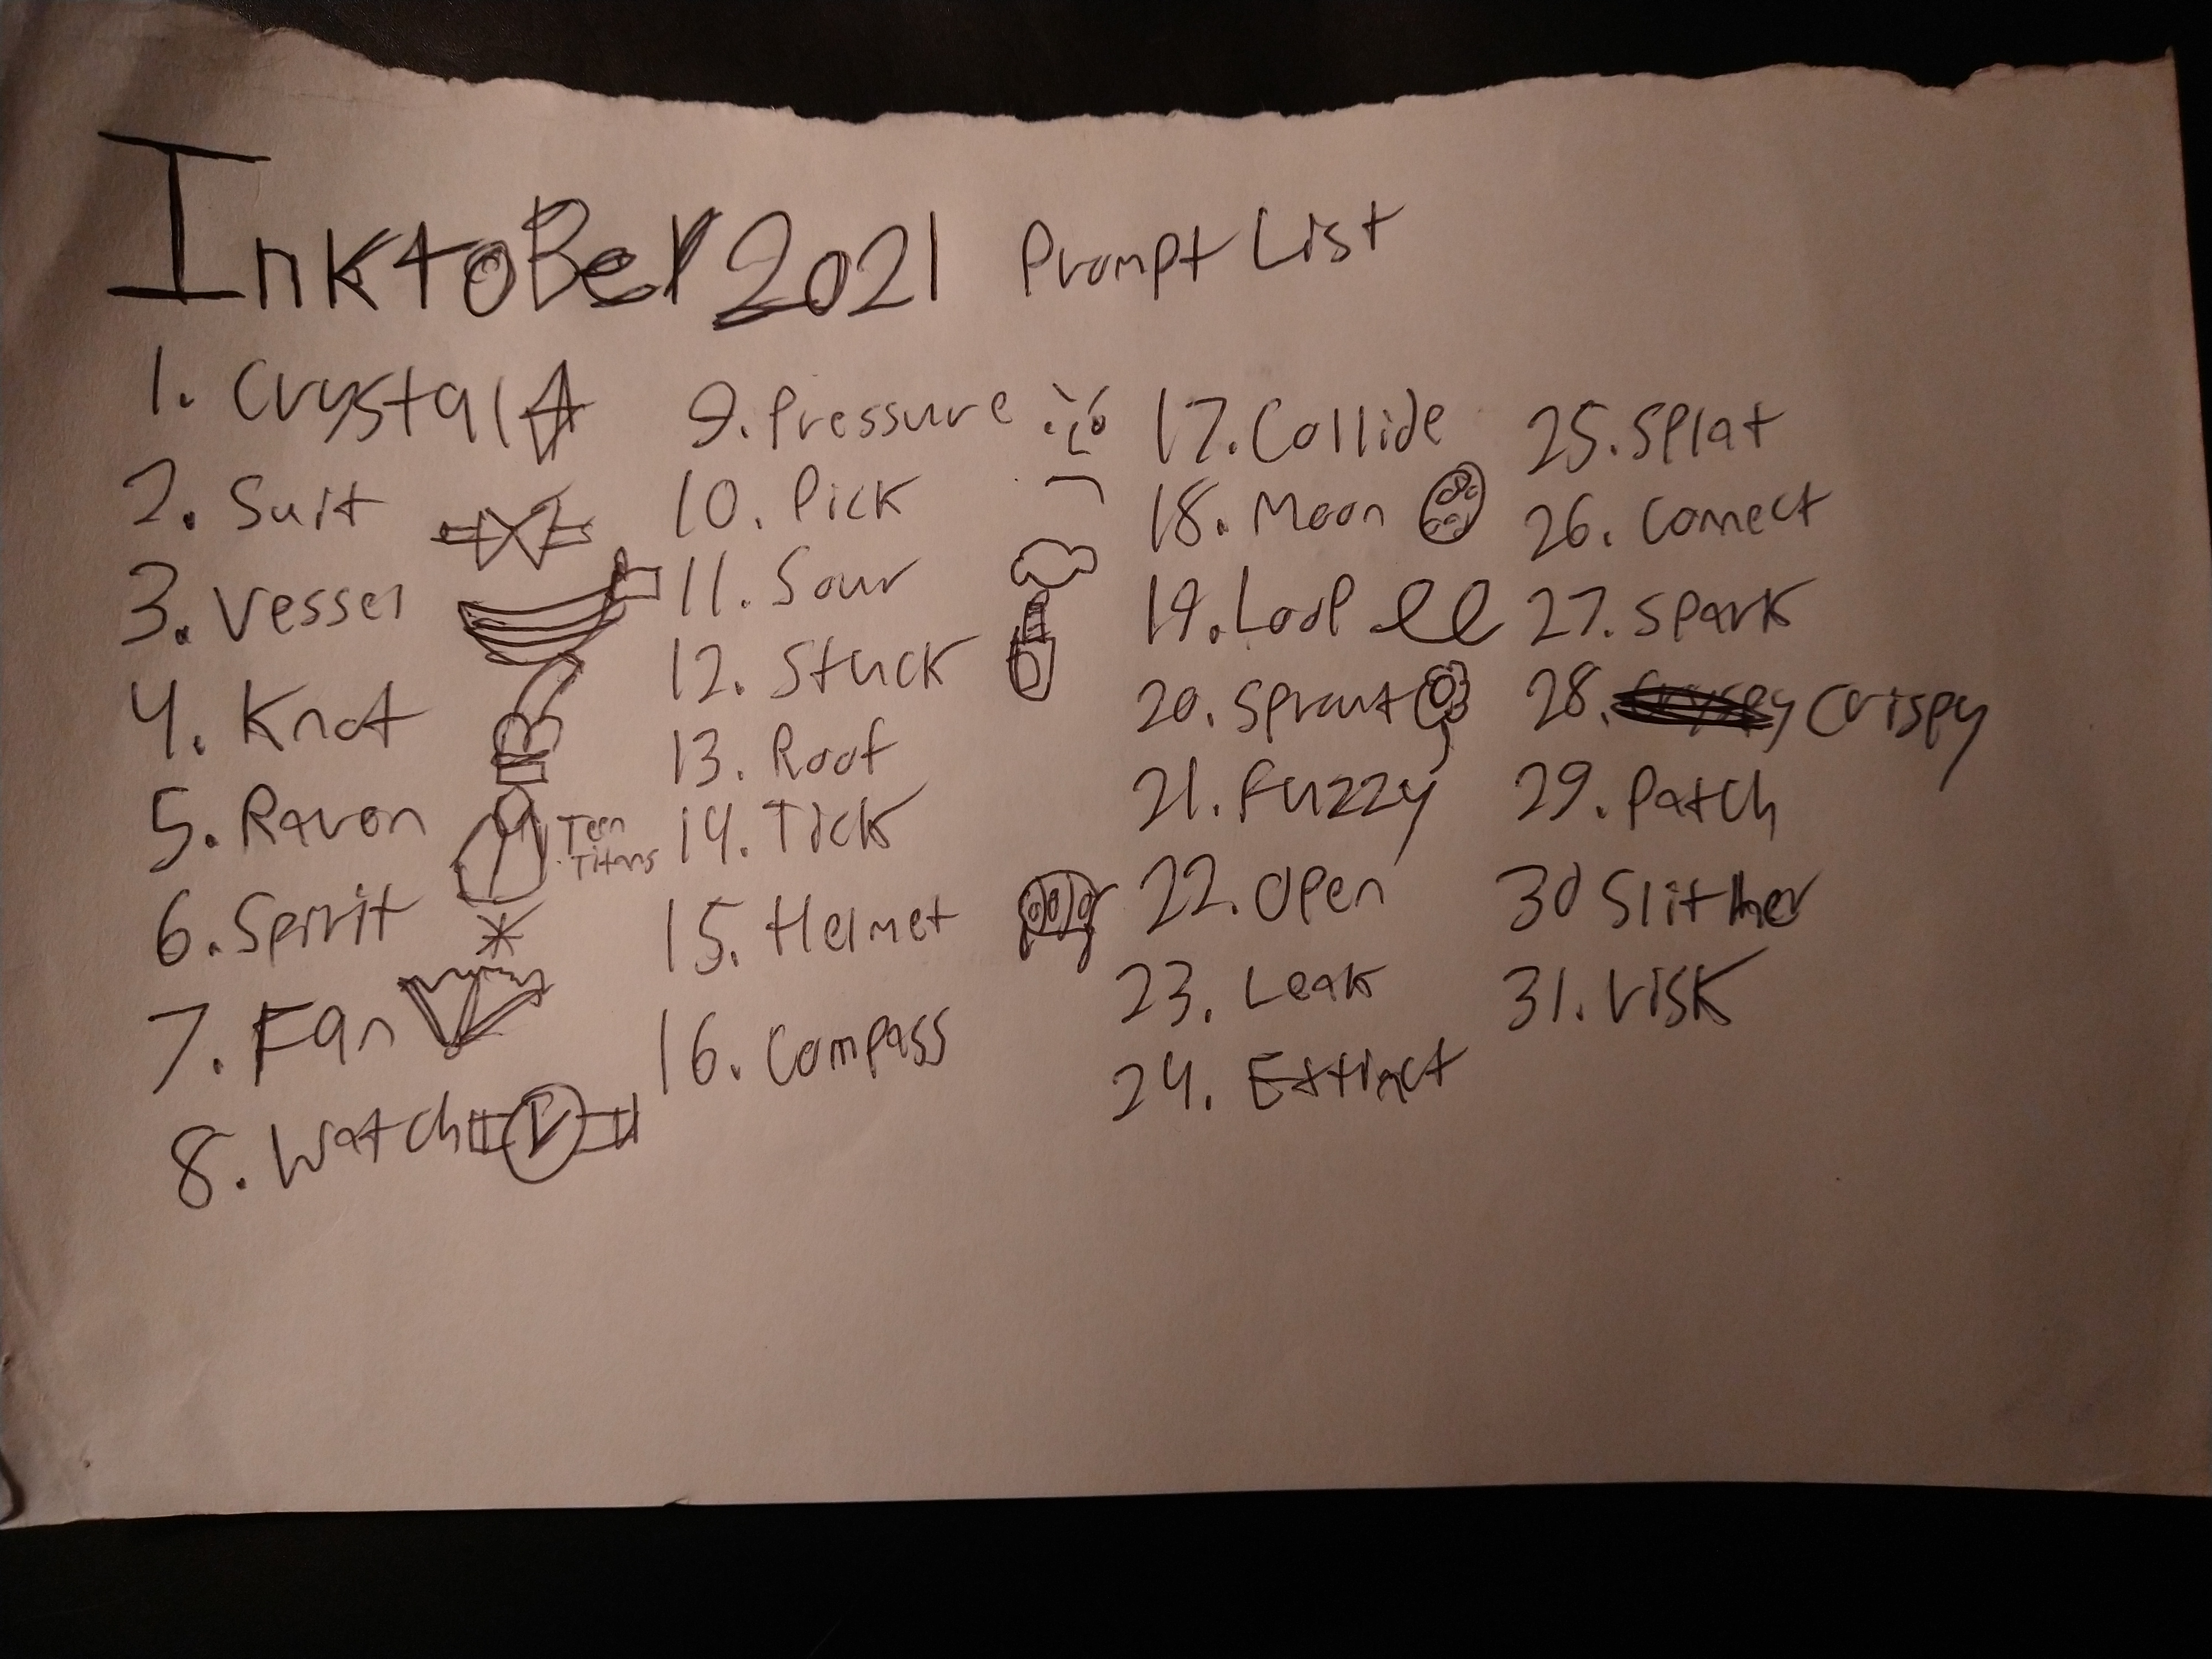 InktoBer 2021 Prompt List
1. Crystal
2. Suit
3. Vessel
4. Knot
5. Raven
Teen
Titans
6. Spirit
7. Fan
8. Watch
9. Pressure
10. Pick
11. Sour
12. Stuck
13. Roof
14. Tick
15. Helmet
16. Compass
17. Collide
18. Moon
19. Loop
20. Sprout
21. Fuzzy
22. Open
23. Leak
24. Extinct
25. Splat
26. Connect
27. Spark
28. Crispy
29. Patch
30 Slither
31. risk